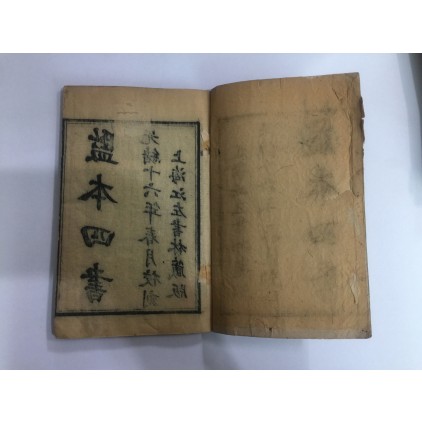 上海江左書林藏版
光緒十六年春月校刻
監本四書